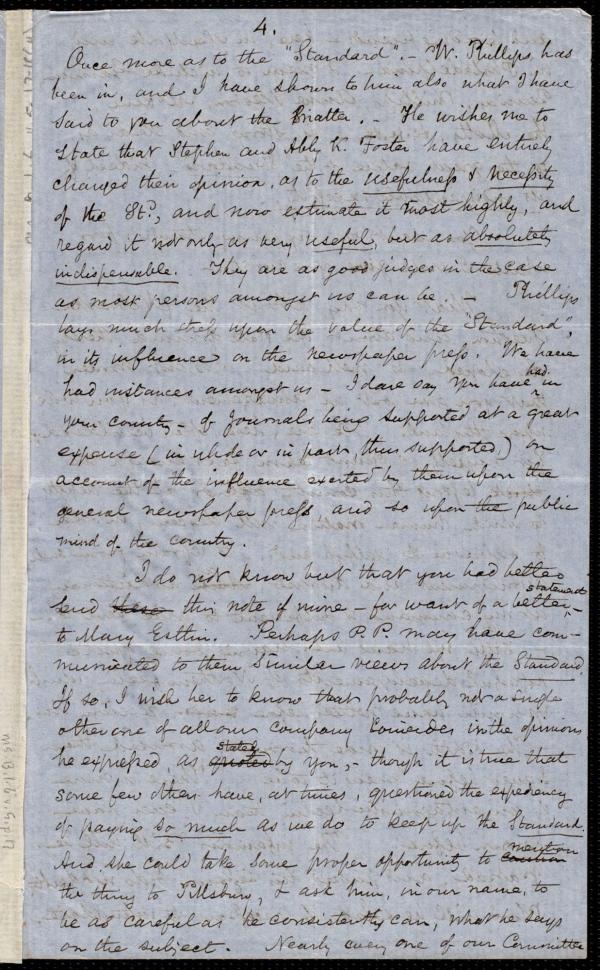 4.
Once more as to the "Standard". - W. Phillips has
been in, and I have shown to him also what I have
said to you about the matter. - He wishes me to
state that Stephen and Abby K. Foster have entirely
changed their opinion, as to the usefulness & necessity
of the St?, and now estimate it most highly, and
regard it not only as very useful, but as absolutely
indispensable. They are as good judges in the case
as most persons amongst us can be. - Phillips
lays much stress upon the value of the "Standard",
in its influence on the newspaper press. We have
had instances amongst us - I dare say you have had in
your country - of Journals being supported at a great
expense (in whole or in part, thus supported,) on
account of the influence exerted by them upon the
general newspaper press, and so upon the public
mind of the country.
I do not know but that you had better
send these this note of mine - for want of a better statement -
to Mary Estlin. Perhaps P.P. may have com-
municated to them similar views about the Standard.
If so, I wish her to know that probably not a single
other one of all our company coincides in the opinions
he expressed as quoted stated by you, - though it is true that
some few others have, at times, questioned the expediency
of paying so much as we do to keep up the Standard.
And she could take some proper opportunity to caution mention
the thing to Pillsbury, & ask him, in our name, to
be as careful as he consistently can, what he says
on the subject. Nearly every one of our Committee